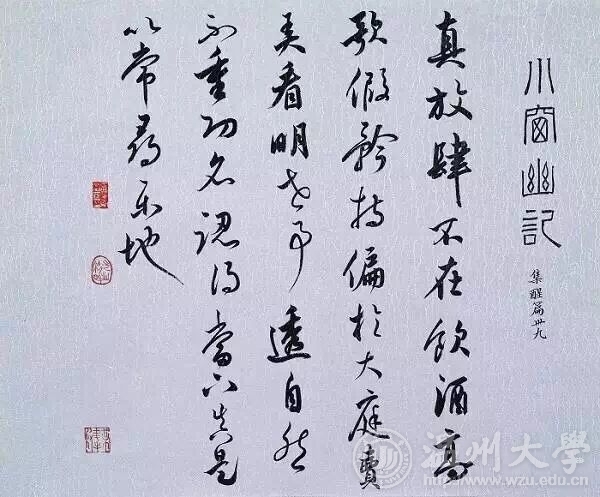 小窗幽記
集醒篇卅九
真放肆不在飲酒高
歌假矜持偏於大庭賣
弄看明世事透自然
不重功名認得當下真是
以常尋樂地
温州大學
www.wzu.edu.cn